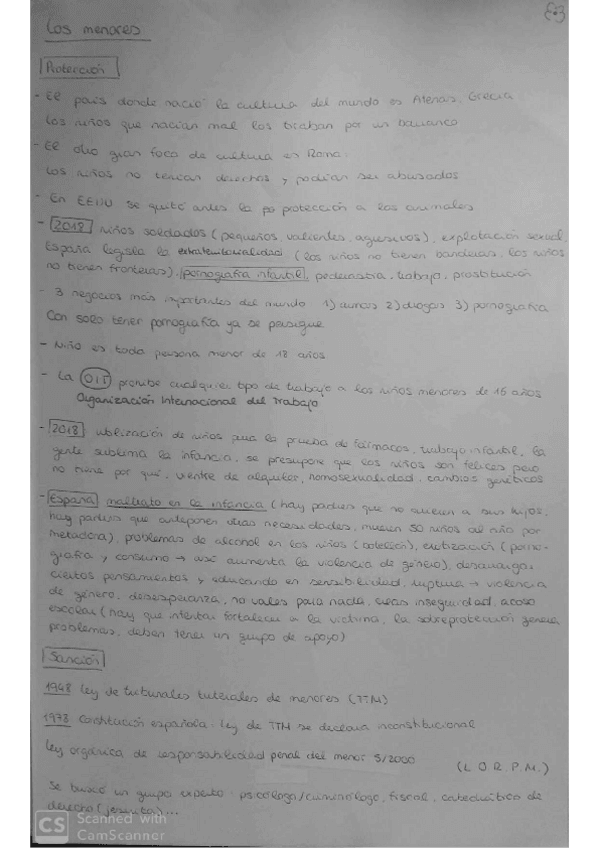 E.3
Los menores
Protección
- El país donde nació la cultura del mundo es Atenas, Grecia
Los niños que nacían mal los tiraban por un barranco
- El otro gran foco de cultura es Roma:
Los niños no tenían derechos y podían ser abusados
- En EEUU se quitó antes la protección a los animales
- 2018 niños soldados (pequeños, valientes, agresivos), explotación sexual,
España legisla la extraterritorialidad (los niños no tienen banderas, los niños
no tienen fronteras), pornografía infantil, pederastia, trabajo, prostitución
- 3 negocios más importantes del mundo: 1) armas 2) drogas 3) pornografía
Con solo tener pornografía ya se persigue
- Niño es toda persona menor de 18 años
- La OIT prohibe cualquier tipo de trabajo a los niños menores de 15 años
Organización Internacional del Trabajo
- 2018 utilización de niños para la prueba de fármacos, trabajo infantil, la
gente sublima la infancia, se presupone que los niños son felices pero
no tiene por qué, vientre de alquiler, homosexualidad, cambios genéticos
- España maltrato en la infancia (hay padres que no quieren a sus hijos,
hay padres que anteponen otras necesidades, mueren 50 niños al año por
metadona), problemas de alcohol en los niños (botellón), erotización (porno-
grafía y consumo → así aumenta la violencia de género),
ciertos pensamientos y educando en sensibilidad, ruptura → violencia
de género, desesperanza, no vales para nada, creas inseguridad, acoso
escolar (hay que intentar fortalecer a la víctima, la sobreprotección genera
problemas, deben tener un grupo de apoyo)
Sanción
1948 Ley de tribunales tutelares de menores (TTM)
1978 Constitución española: ley de TTM se declara inconstitucional
Ley orgánica de responsabilidad penal del menor 5/2000 (L.O.R.P.M.)
Se buscó un grupo experto: psicólogo/criminólogo, fiscal, catedrático de
derecho (jesuita)...
CS Scanned with
CamScanner